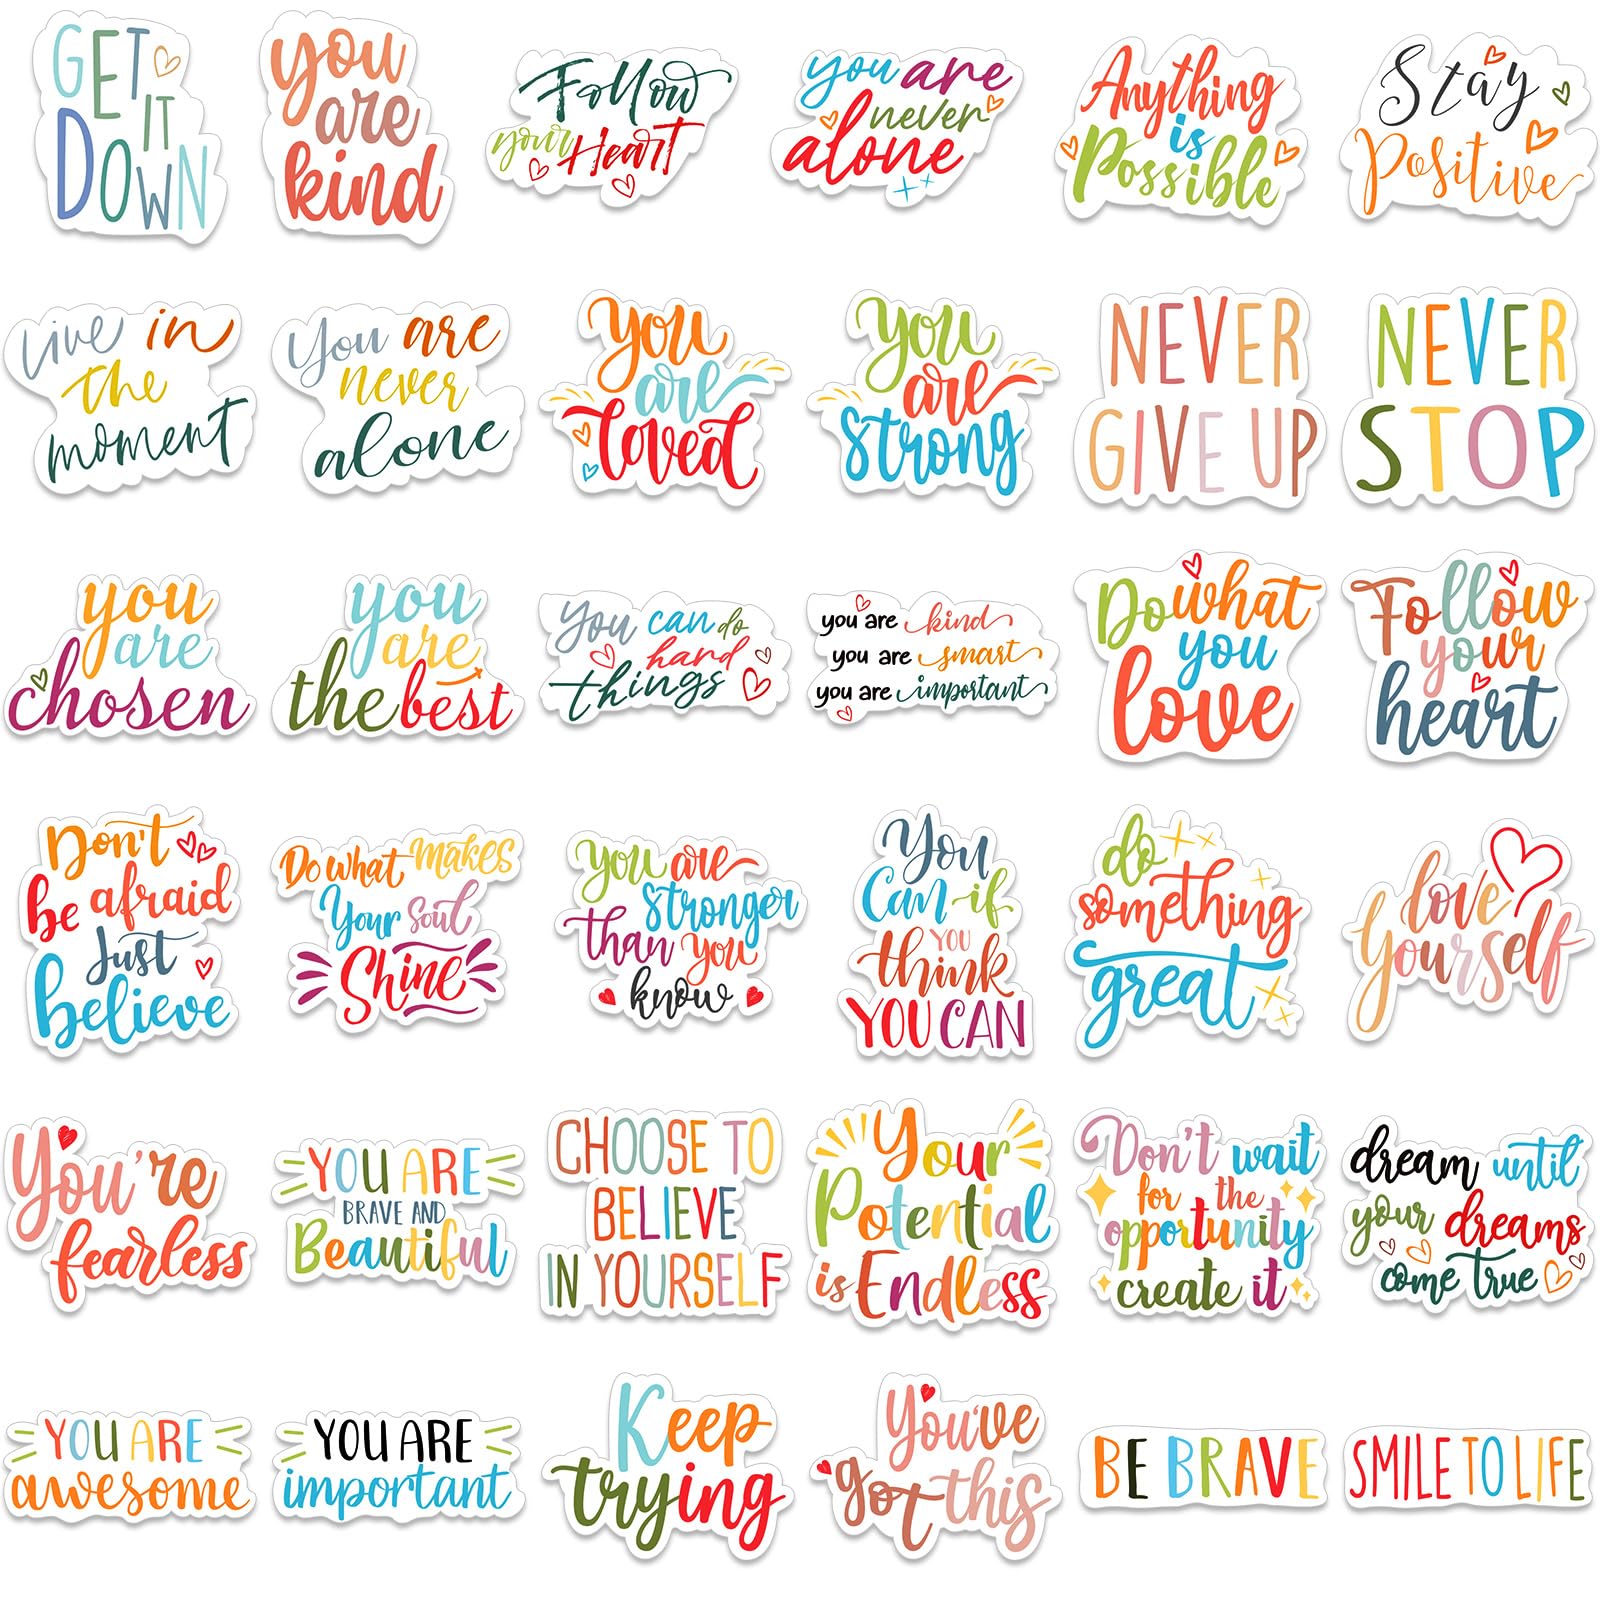 GET
IT
DOWN
you
are
kind
Follow
your Heart
you are
never
alone
Anything
is
Possible
Stay
Positive
Live in
the
moment
You are
never
alone
you
are
loved
you
are
strong
NEVER
GIVE UP
NEVER
STOP
you
are
chosen
you
are
the best
You can do
hard
things
you are kind
you are smart
you are important
Do what
you
love
Follow
your
heart
Don't
be afraid
Just
believe
Do what makes
Your Soul
Shine
you are
stronger
than you
know
You
Can if
YOU
think
YOU CAN
do
something
great
love
yourself
You're
fearless
YOU ARE
BRAVE AND
Beautiful
CHOOSE TO
BELIEVE
IN YOURSELF
Your
Potential
is Endless
Don't wait
for the
opportunity
create it
dream until
your dreams
come true
YOU ARE
awesome
YOU ARE
important
Keep
trying
You've
got this
BE BRAVE
SMILE TO LIFE